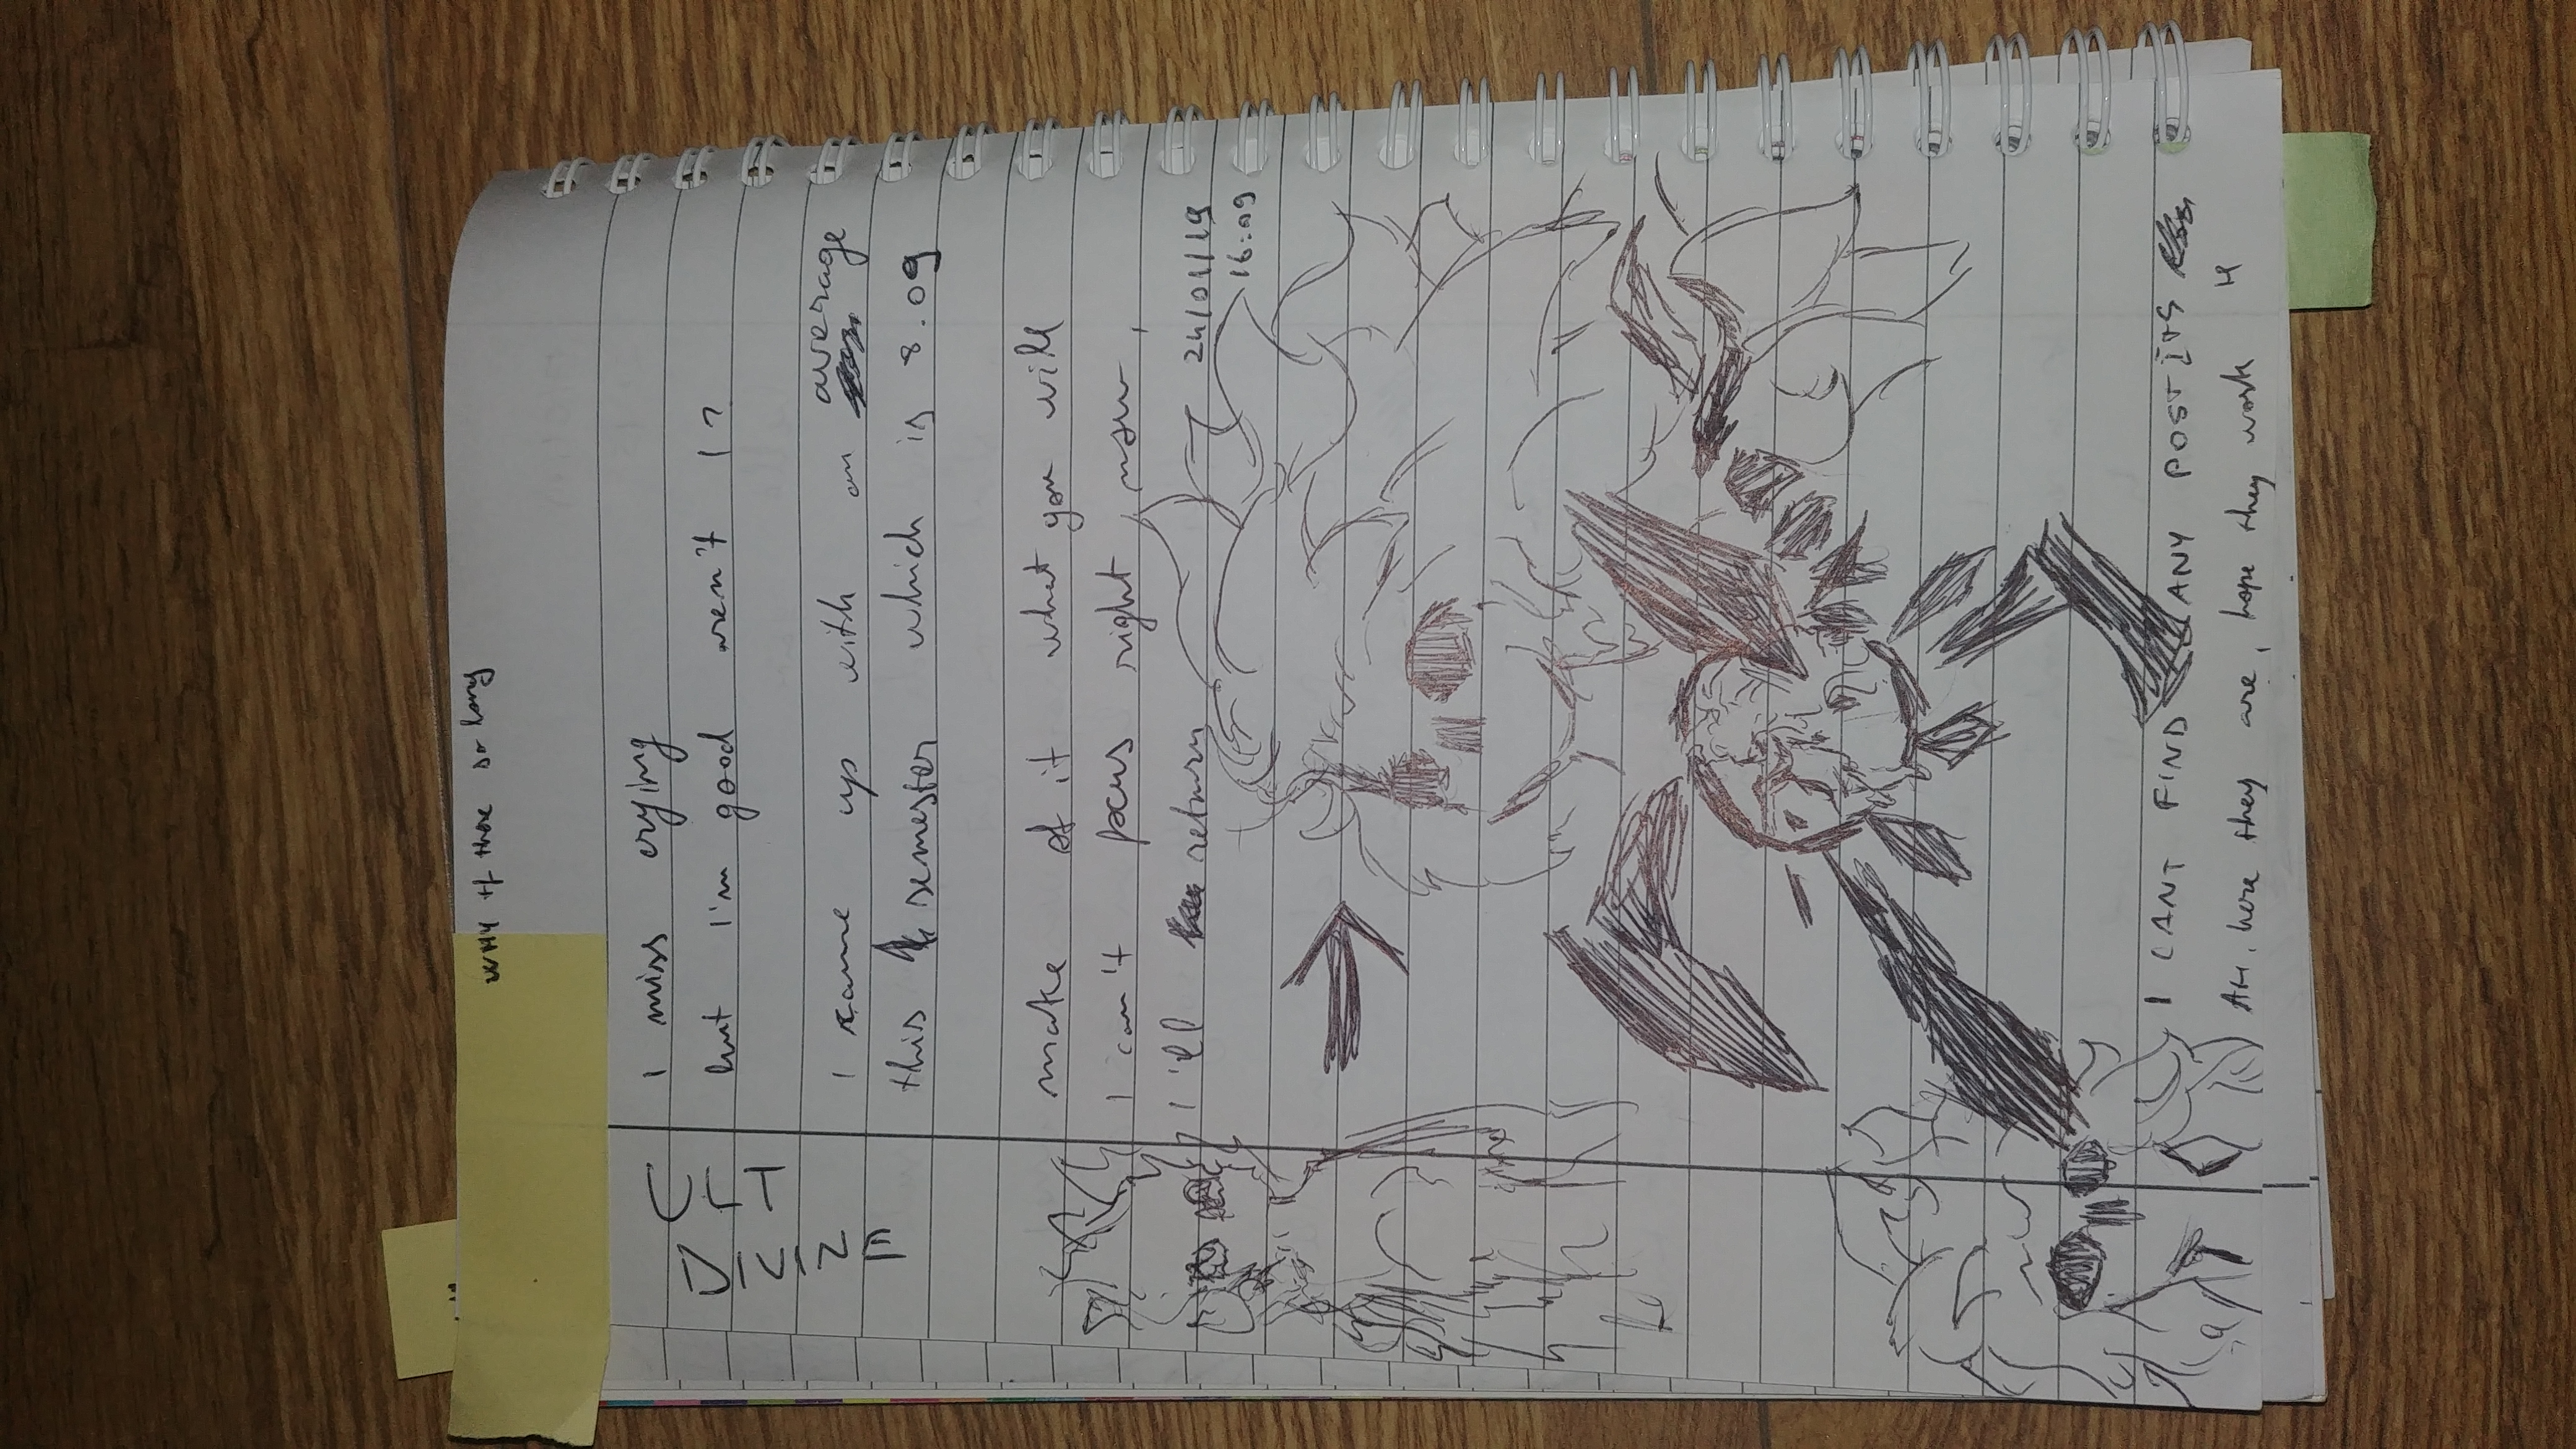 WHY tf these so long
ULT
DIVINE
I miss crying
but I'm good aren't I?
I came up with an average
this semester which is 8.09
make of it what you will
I can't focus right now,
I'll return 24/01/19
16:09
I CANT FIND ANY POST ITS
AH, here they are, hope they work